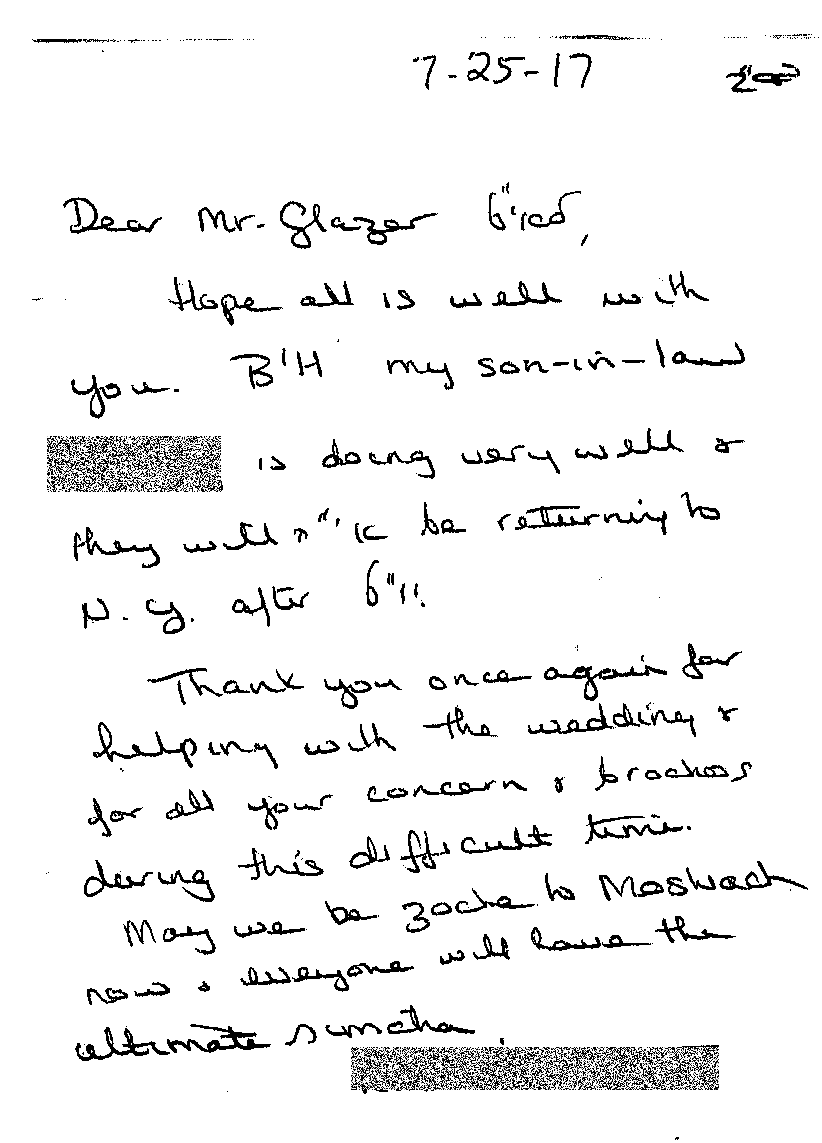 7-25-17
Dear Mr. Glazer שליט"א,
Hope all is well with
you. B'H my son-in-law
is doing very well &
they will אי"ה be returning to
N.Y. after
Thank you once again for
helping with the wedding &
for all your concern & brochos
during this difficult time.
May we be zoche to Moshiach
now & everyone will have the
ultimate simcha.